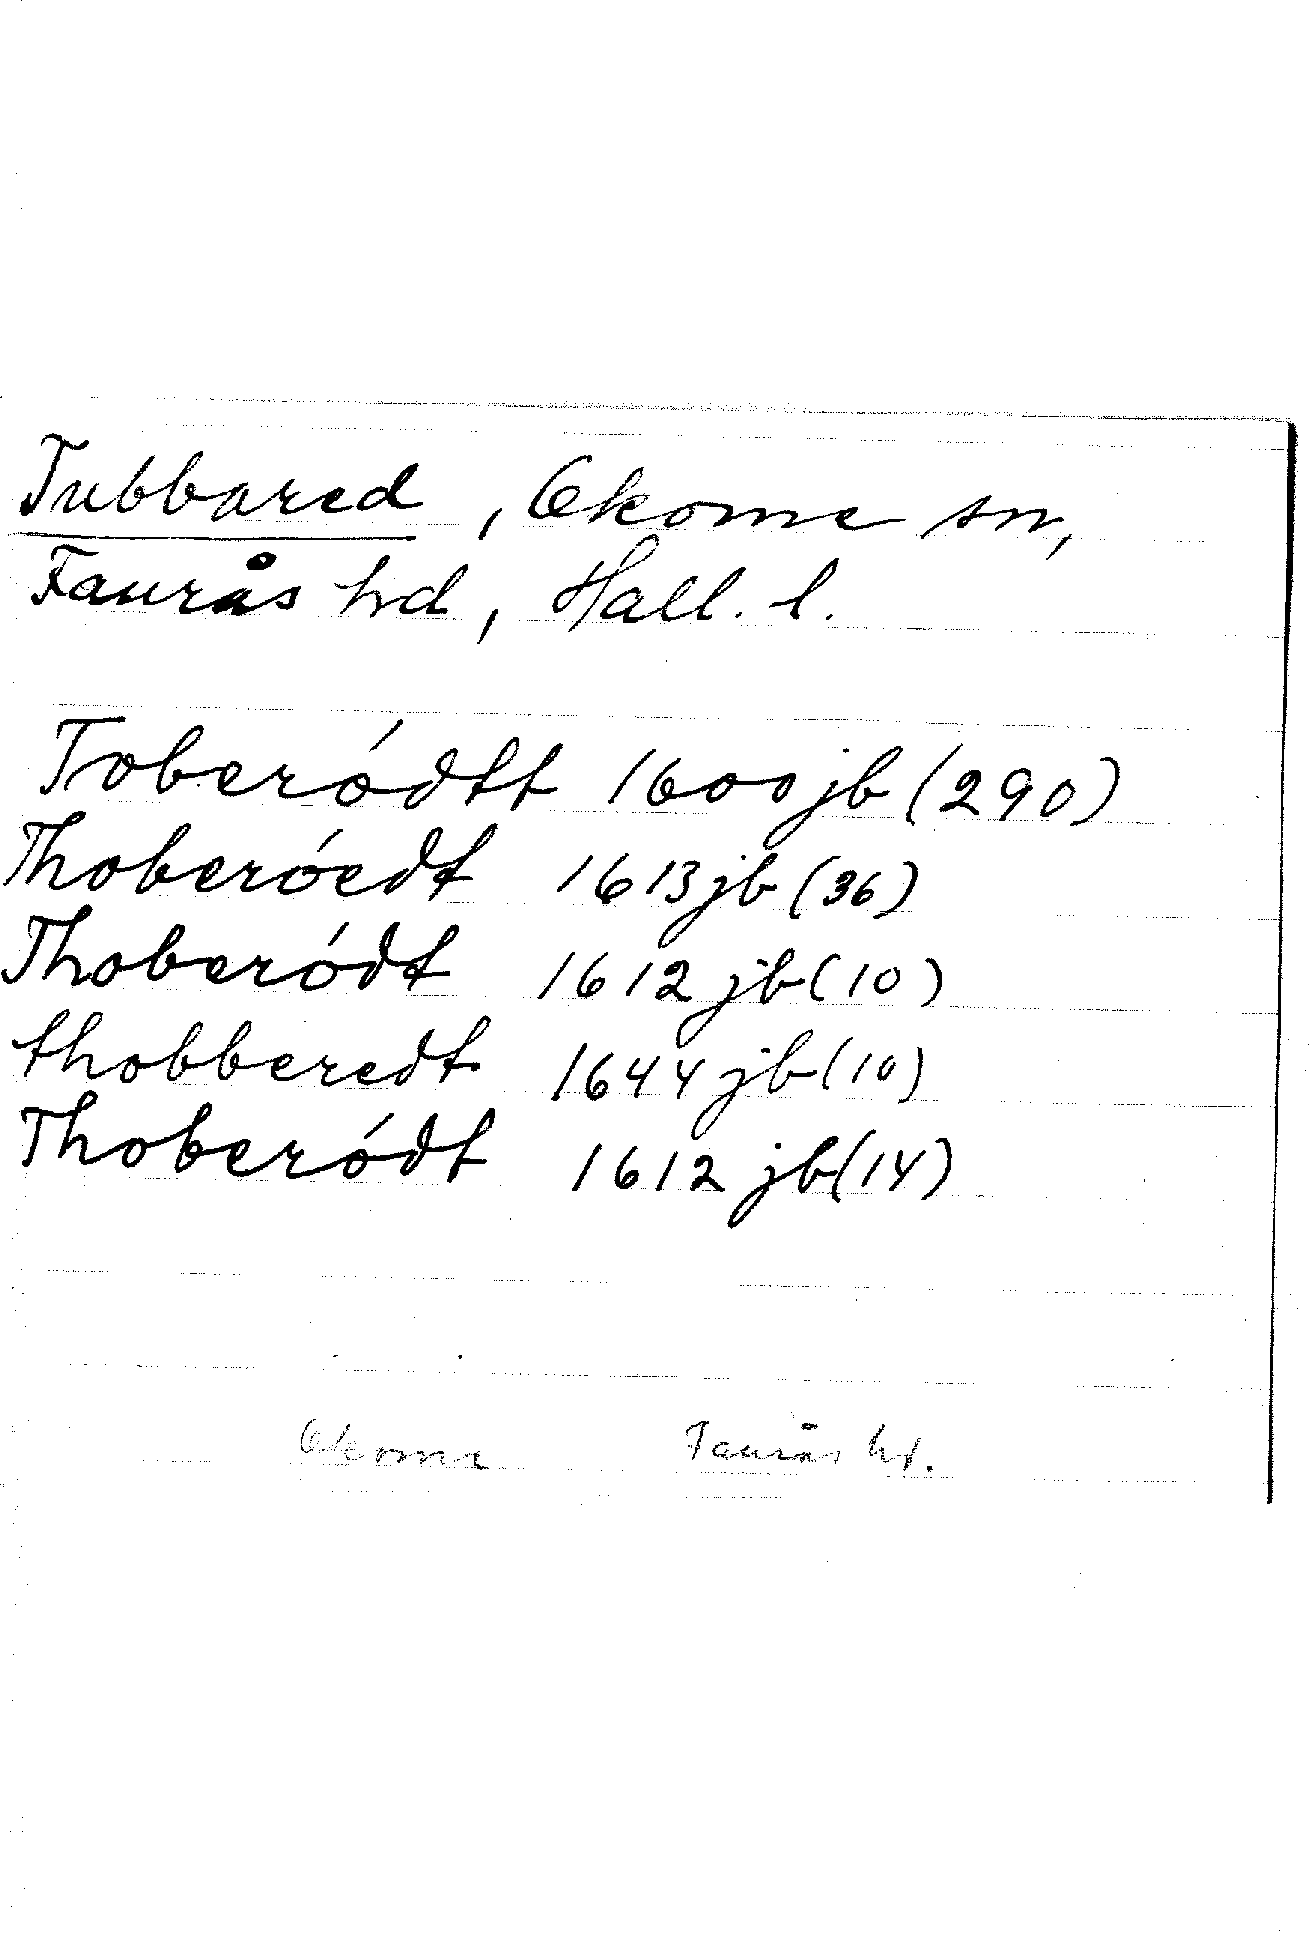 Tubbared, Okome sn,
Faurås hd, Hall. l.
Toberódtt 1600 jb (290)
Thoberóedt 1613 jb (36)
Thoberódt 1612 jb (10)
thobberedt 1644 jb (10)
Thoberódt 1612 jb (14)
Okome Faurås hd.